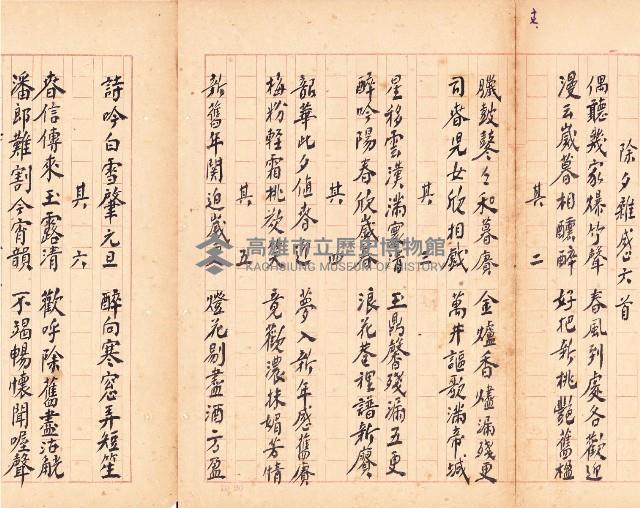 除夕雜感六首
偶聽幾家爆竹聲 春風到處各歡迎
漫云歲暮相醺醉 好把新桃艷舊楹
其二
臘鼓鼕々和暮賡 金爐香燼漏殘更
司春兒女欣相戲 萬井謳歌滿帝城
其三
星移雲漢滿寰清 玉鼎馨殘漏五更
醉吟陽春欣歲春 浪花卷裡譜新賡
其四
韶華此夕值春迎 夢入新年感舊賡
梅粉輕霜桃欲笑 竟歡濃抹媚芳情
其五
新舊年関迫歲 燈花剔盡酒方盈
詩吟白雪肇元旦 醉向寒窓弄短笙
其六
春信傳來玉露清 歡呼除舊盡沽觥
潘郎難割今宵韻 不竭暢懷聞喔聲
高雄市立歷史博物館
KAOHSIUNG MUSEUM OF HISTORY